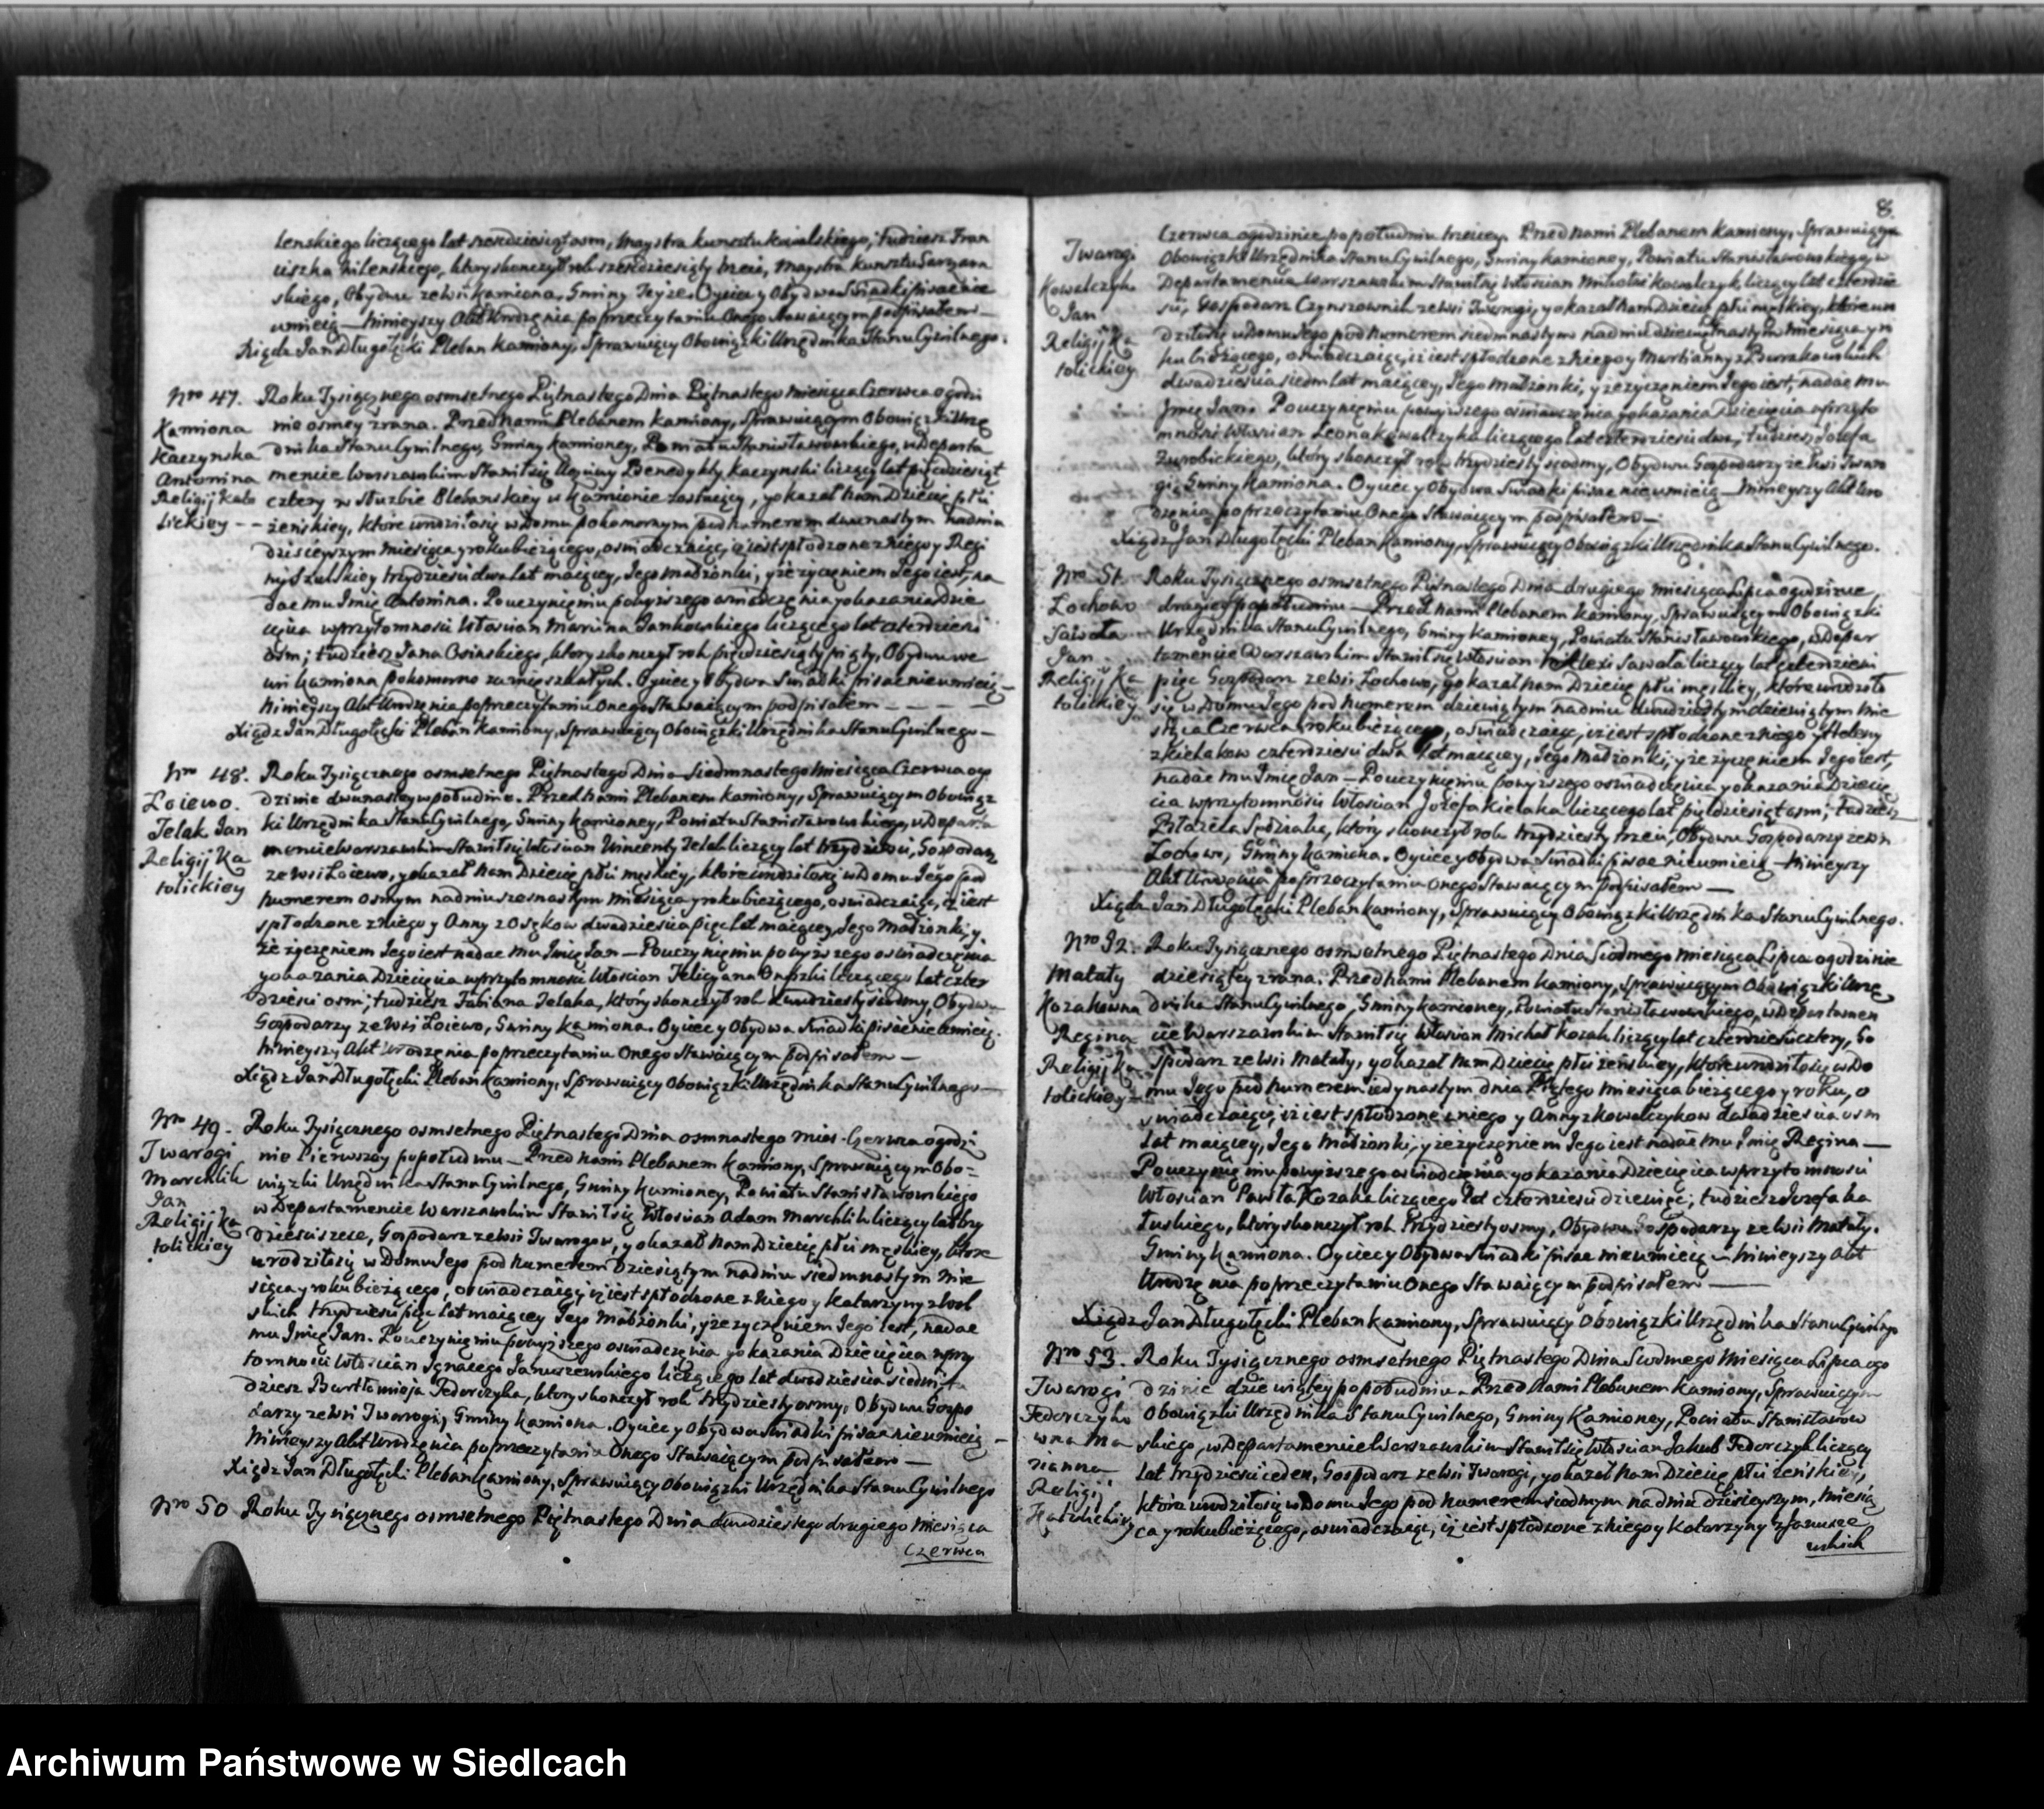 lenskiego liczącego lat sześdziesiąt osm, Maystra kunsztu kowalskiego, tudziesz Fran
ciszka Zilenskiego, który skonczył rok sześdziesiąty trzeci, Maystra kunsztu
skiego, Obydwu ze Wsi Kamiona, Gminy Teyże. Oyciec y Obydwa Swiadki pisac nie
umieią — Ninieyszy Akt Urodzęnia po przeczytaniu Onego Stawaiącym podpisałem —
Xiądz Jan Długołęcki Pleban Kamiony, Sprawuiący Obowiązki Urzędnika Stanu Cywilnego.
Nro 47. Roku Tysiącznego osmsetnego Piętnastego Dnia Piętnastego Miesiąca Czerwca o godzi
Kamiona nie osmey zrana. Przed Nami Plebanem Kamiony, Sprawuiącym Obowiązki Urzę
Kaczynska dnika Stanu Cywilnego, Gminy Kamioney, Powiatu Stanisławowskiego, w Departa
Antonina mencie Warszawskim Stawił się Benedykt Kaczynski liczący lat pięcdziesiąt
Religij Kato cztery w służbie Plebanskiey w Kamionie zostaiący, y okazał Nam Dziecię płci
lickiey - - żeńskiey, które urodziło się w Domu pokomornym pod Numerem dwunastym Nadniu
dzisieyszym Miesiąca y roku bieżącego, oswiadczaiąc, iż iest spłodzone z Niego y Regi
ny Szulskiey trzydziesci dwa lat maiącey, Jego Małżonki, y że życzęniem Jego iest, na
dac mu Imię Antonina. Po uczynięniu powyższego oswiadczęnia y okazania Dzie
cięcia w przytomnosci Włoscian Marcina Jankowskiego liczącego lat czterdziesci
osm; tudziesz Jana Osinskiego, który skonczył rok pięcdziesiąty piąty, Obydwu we
wsi Kamiona pokomorno zamięszkałych. Oyciec y Obydwa Swiadki pisac nie umieią —
Ninieyszy Akt Urodzęnia po przeczytaniu Onego Stawaiącym podpisałem — — —
Xiądz Jan Długołęcki Pleban Kamiony, Sprawuiący Obowiązki Urzędnika Stanu Cywilnego —
Nro 48. Roku Tysiącznego osmsetnego Piętnastego Dnia Siedmnastego Miesiąca Czerwca o go
Łoiewo. dzinie dwunastey w południe. Przed Nami Plebanem Kamiony, Sprawuiącym Obowiąz
Jelak Jan ki Urzędnika Stanu Cywilnego, Gminy Kamioney, Powiatu Stanisławowskiego, w Departa
Religij Ka mencie Warszawskim Stawił się Włoscian Wincenty Jelak liczący lat trzydziesci, Gospodarz
tolickiey ze Wsi Łoiewo, y okazał Nam Dziecię płci męskiey, które urodziło się w Domu Jego pod
Numerem osmym nadniu szesnastym Miesiąca y roku bieżącego, oswiadczaiąc, iż iest
spłodzone z Niego y Anny z Osęków dwadziescia pięc lat maiącey, Jego Małżonki, y
że życzęniem Jego iest nadac mu Imię Jan — Po uczynięniu powyższego oswiadczęnia
y okazania Dziecięcia w przytomnosci Włoscian Felicyana liczącego lat czter
dziesci osm; tudziesz Fabiana Jelaka, który skonczył rok dwudziesty siodmy, Obydwu
Gospodarzy ze Wsi Łoiewo, Gminy Kamiona. Oyciec y Obydwa Swiadki pisac nie umieią.
Ninieyszy Akt Urodzęnia po przeczytaniu Onego Stawaiącym podpisałem —
Xiądz Jan Długołęcki Pleban Kamiony, Sprawuiący Obowiązki Urzędnika Stanu Cywilnego —
Nro 49. Roku Tysiącznego osmsetnego Piętnastego Dnia osmnastego Mies. Czerwca o godzi
Twarogi nie Pierwszey popołudniu — Przed Nami Plebanem Kamiony, Sprawuiącym Obo-
Marchlik wiązki Urzędnika Stanu Cywilnego, Gminy Kamioney, Powiatu Stanisławowskiego
Jan w Departamencie Warszawskim Stawił się Włoscian Adam Marchlik liczący lat trzy
Religij Ka dziesci szesc, Gospodarz ze Wsi Twarogow, y okazał Nam Dziecię płci męskiey, które
tolickiey urodziło się w Domu Jego pod Numerem dziesiątym nadniu siedmnastym Mie
siąca y roku bieżącego, oswiadczaiąc, iż iest spłodzone z Niego y Katarzyny z
skich trzydziesci pięc lat maiącey Jego Małżonki, y że życzęniem Jego iest, nadac
mu Imię Jan. Po uczynięniu powyższego oswiadczęnia y okazania Dziecięcia w przy
tomnosci Włoscian Ignacego Januszewskiego liczącego lat dwadziescia siedm; tu
dziesz Bartłomieja Fedorczyka, który skonczył rok trzydziesty osmy, Obydwu Gospo
darzy ze Wsi Twarogi, Gminy Kamiona. Oyciec y Obydwa Swiadki pisac nie umieią —
Ninieyszy Akt Urodzęnia po przeczytaniu Onego Stawaiącym podpisałem —
Xiądz Jan Długołęcki Pleban Kamiony, Sprawuiący Obowiązki Urzędnika Stanu Cywilnego
Nro 50 Roku Tysiącznego osmsetnego Piętnastego Dnia dwudziestego drugiego Miesiąca
Czerwca
8.
Czerwca o godzinie popołudniu trzeciey. Przed Nami Plebanem Kamiony, Sprawuiącym
Twarogi Obowiązki Urzędnika Stanu Cywilnego, Gminy Kamioney, Powiatu Stanisławowskiego, w
Kowalczyk Departamencie Warszawskim Stawił się Włoscian Mikołai Kowalczyk liczący lat czterdzie
Jan sci, Gospodarz Czynszownik ze Wsi Twarogi, y okazał Nam Dziecię płci męskiey, które uro
Religij Ka dziło się w Domu Jego pod Numerem siedmnastym nadniu dziewiętnastym Miesiąca y ro
tolickiey ku bieżącego, oswiadczaiąc, iż iest spłodzone z Niego y Maryanny z Burakowskich
dwadziescia siedm lat maiącey, Jego Małżonki, y że życzęniem Jego iest, nadac mu
Imię Jan. Po uczynięniu powyższego oswiadczęnia y okazania Dziecięcia w przyto
mnosci Włoscian Leona Kowalczyka liczącego lat czterdziesci dwa, tudziesz Jozefa
Zurobickiego, który skonczył rok trzydziesty siodmy, Obydwu Gospodarzy ze Wsi Twaro
gi, Gminy Kamiona. Oyciec y Obydwa Swiadki pisac nie umieią — Ninieyszy Akt Uro
dzęnia po przeczytaniu Onego Stawaiącym podpisałem —
Xiądz Jan Długołęcki Pleban Kamiony, Sprawuiący Obowiązki Urzędnika Stanu Cywilnego.
Nro 51. Roku Tysiącznego osmsetnego Piętnastego Dnia drugiego Miesiąca Lipca o godzinie
Łochowo drugiey popołudniu — Przed Nami Plebanem Kamiony, Sprawuiącym Obowiązki
Sawała Urzędnika Stanu Cywilnego, Gminy Kamioney, Powiatu Stanisławowskiego, w Depar
Jan tamencie Warszawskim Stawił się Włoscian Alexi Sawała liczący lat czterdziesci
Religij Ka pięc Gospodarz ze Wsi Łochowo, y okazał Nam Dziecię płci męskiey, które urodziło
tolickiey się w Domu Jego pod Numerem dziewiątym nadniu dwudziestym dziewiątym Mie
siąca Czerwca roku bieżącego, oswiadczaiąc, iż iest spłodzone z Niego y Heleny
z Kielakow czterdziesci dwa lat maiącey, Jego Małżonki, y że życzęniem Jego iest,
nadac mu Imię Jan — Po uczynięniu powyższego oswiadczęnia y okazania Dziecię
cia w przytomnosci Włoscian Jozefa Kielaka liczącego lat pięcdziesiąt osm; tudziesz
Błażeia Sędziaka, który skonczył rok trzydziesty trzeci, Obydwu Gospodarzy ze Wsi
Łochowo, Gminy Kamiona. Oyciec y Obydwa Swiadki pisac nie umieią — Ninieyszy
Akt Urodzęnia po przeczytaniu Onego Stawaiącym podpisałem —
Xiądz Jan Długołęcki Pleban Kamiony, Sprawuiący Obowiązki Urzędnika Stanu Cywilnego.
Nro 52. Roku Tysiącznego osmsetnego Piętnastego Dnia Siodmego Miesiąca Lipca o godzinie
Matały dziesiątey zrana. Przed Nami Plebanem Kamiony, Sprawuiącym Obowiązki Urzę
Kozakowna dnika Stanu Cywilnego, Gminy Kamioney, Powiatu Stanisławowskiego, w Departamen
Regina cie Warszawskim Stawił się Włoscian Michał Kozak liczący lat czterdziesci cztery, Go
Religij Ka spodarz ze Wsi Matały, y okazał Nam Dziecię płci żeńskiey, które urodziło się w Do
tolickiey — mu Jego pod Numerem iedynastym dnia Piątego Miesiąca bieżącego y roku, o
swiadczaiąc, iż iest spłodzone z niego y Anny z Kowalczykow dwadziescia osm
lat maiącey, Jego Małżonki, y że życzęniem Jego iest nadac mu Imię Regina —
Po uczynięniu powyższego oswiadczęnia y okazania Dziecięcia w przytomnosci
Włoscian Pawła Kozaka liczącego lat czterdziesci dziewięc; tudziesz Jozefa Ka
łuskiego, który skonczył rok Trzydziesty osmy, Obydwu Gospodarzy ze Wsi Matały.
Gminy Kamiona. Oyciec y Obydwa Swiadki pisac nie umieią — Ninieyszy Akt
Urodzęnia po przeczytaniu Onego Stawaiącym podpisałem —
Xiądz Jan Długołęcki Pleban Kamiony, Sprawuiący Obowiązki Urzędnika Stanu Cywilnego
Nro 53. Roku Tysiącznego osmsetnego Piętnastego Dnia Siodmego Miesiąca Lipca o go
Twarogi dzinie dziewiątey popołudniu. Przed Nami Plebanem Kamiony, Sprawuiącym
Fedorczyko Obowiązki Urzędnika Stanu Cywilnego, Gminy Kamioney, Powiatu Stanisławow
wna Ma skiego, w Departamencie Warszawskim Stawił się Włoscian Jakub Fedorczyk liczący
rianna lat trzydziesci ieden, Gospodarz ze Wsi Twarogi, y okazał Nam Dziecię płci żeńskiey,
Religij które urodziło się w Domu Jego pod Numerem siodmym nadniu dzisieyszym, Miesią
Katolickiey ca y roku bieżącego, oswiadczaiąc, iż iest spłodzone z Niego y Katarzyny z Janusze
wskich
Archiwum Państwowe w Siedlcach